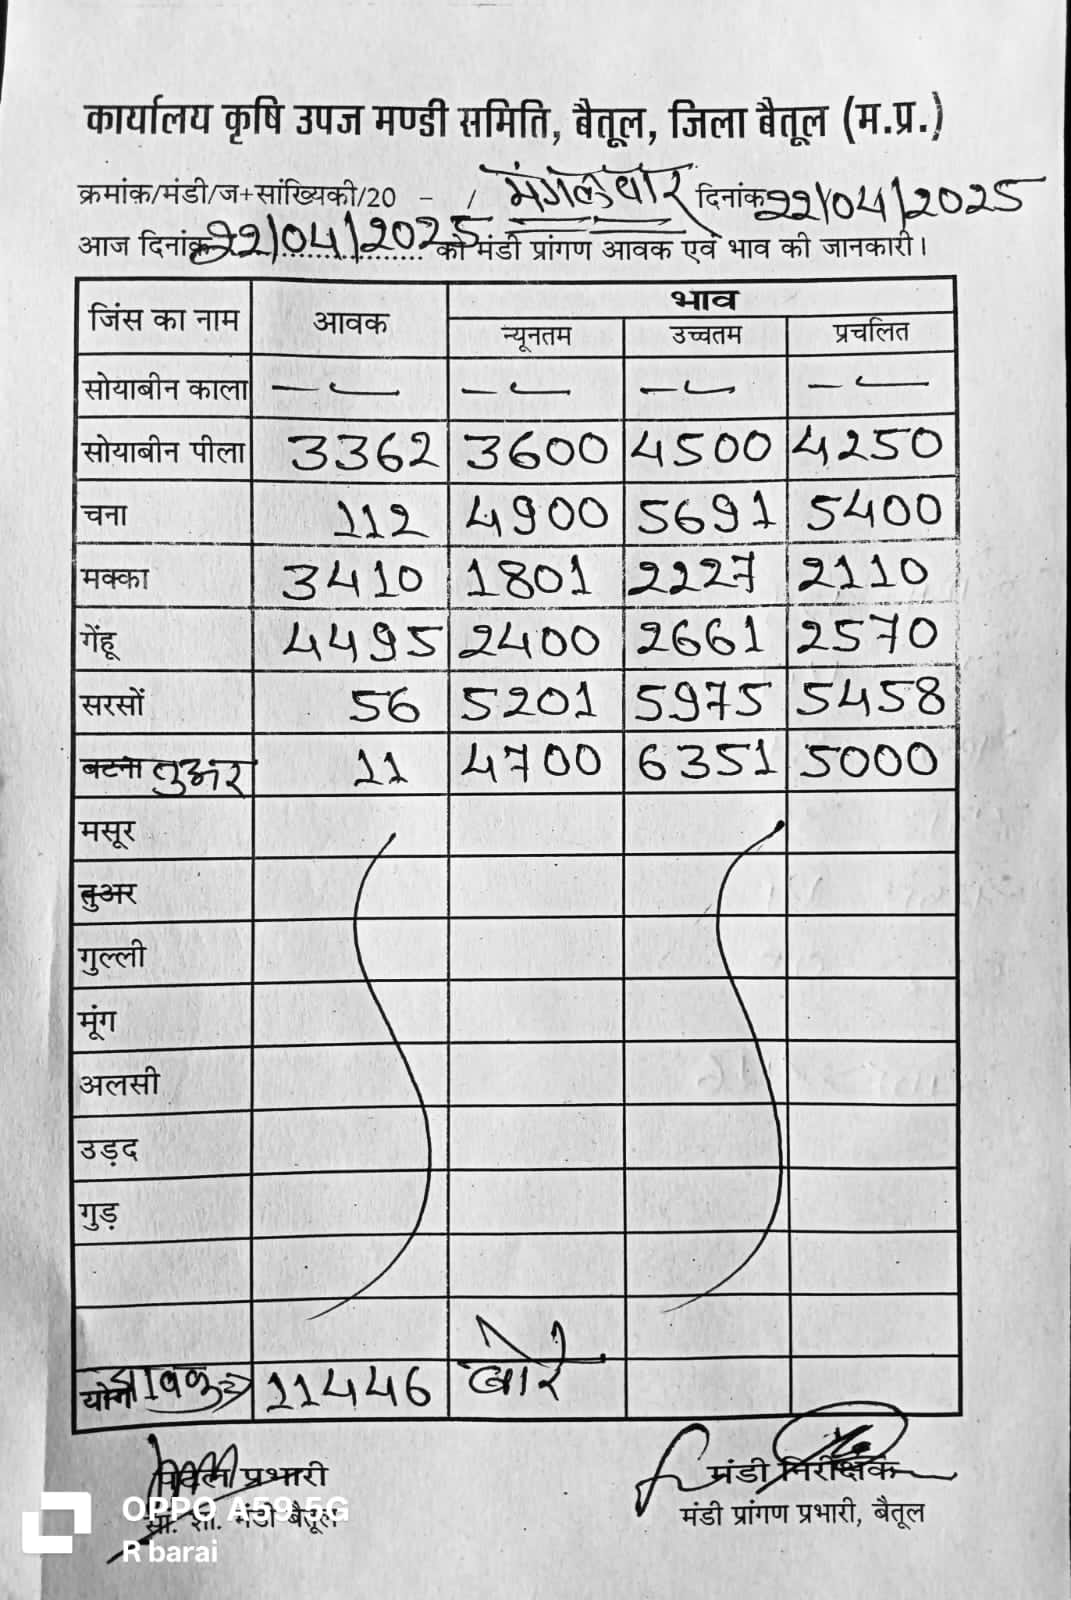 कार्यालय कृषि उपज मण्डी समिति, बैतूल, जिला बैतूल (म.प्र.)
क्रमांक/मंडी/ज+सांख्यिकी/20 - / मंगलवार दिनांक 22/04/2025
आज दिनांक 22/04/2025 को मंडी प्रांगण आवक एवं भाव की जानकारी।
जिंस का नाम आवक भाव
न्यूनतम उच्चतम प्रचलित
सोयाबीन काला — — — —
सोयाबीन पीला 3362 3600 4500 4250
चना 112 4900 5691 5400
मक्का 3410 1801 2227 2110
गेंहू 4495 2400 2661 2570
सरसों 56 5201 5975 5458
बटना तुअर 11 4700 6351 5000
मसूर
तुअर
गुल्ली
मूंग
अलसी
उड़द
गुड़
योग आवक 11446 बोरे
प्रभारी मंडी निरीक्षक
सां. शा. मंडी बैतूल मंडी प्रांगण प्रभारी, बैतूल
OPPO A59 5G
R barai